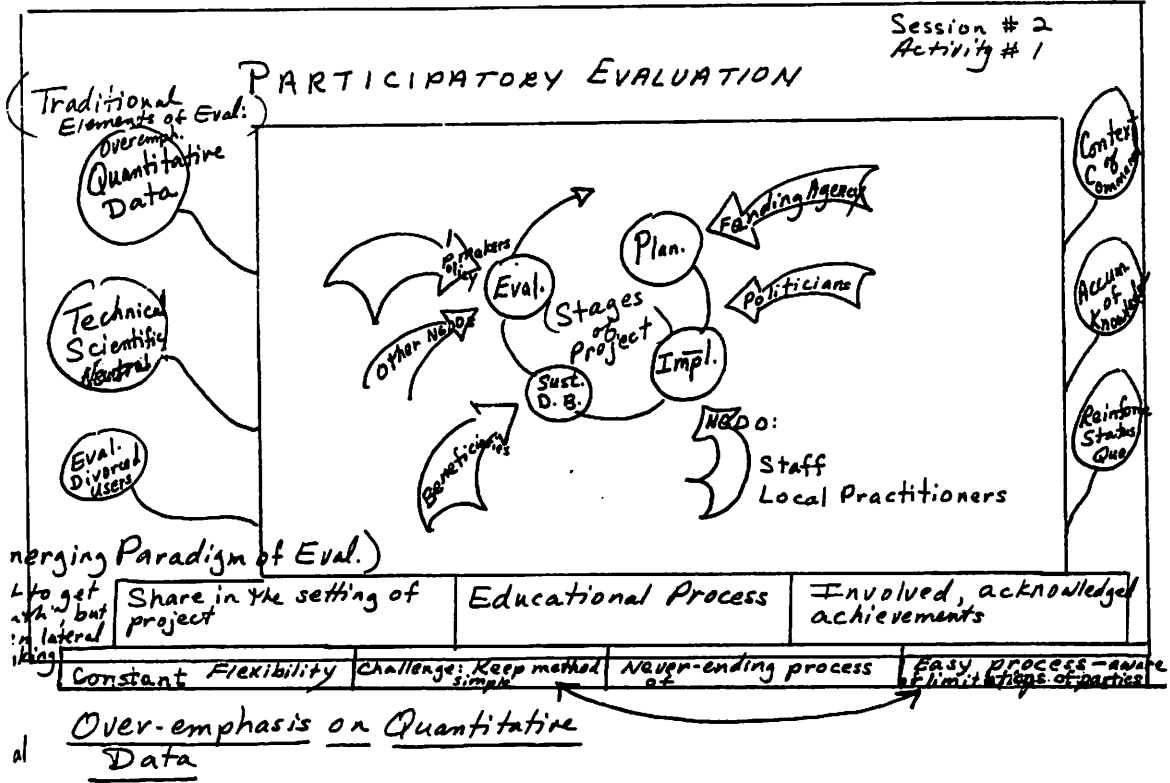 Session # 2
Activity # 1
PARTICIPATORY EVALUATION
(Traditional
Elements of Eval:)
Overemph.
Quantitative
Data
Technical
Scientific
Neutral
Eval.
Divorced
Users
Policy
makers
Other NGDOS
Beneficiaries
Eval.
Stages
of
Project
Plan.
Impl.
Sust.
D.B.
Funding Agency
Politicians
NGDO:
Staff
Local Practitioners
Context
of
Accum.
of
Knowled
Reinforce
Status
Quo
nerging Paradigm of Eval.)
to get
but
in lateral
Share in the setting of
project
Educational Process
Involved, acknowledged
achievements
Constant Flexibility
Challenge: Keep method
simple
Never-ending process
of
Easy process-aware
of limitations of parties
Over-emphasis on Quantitative
Data
al